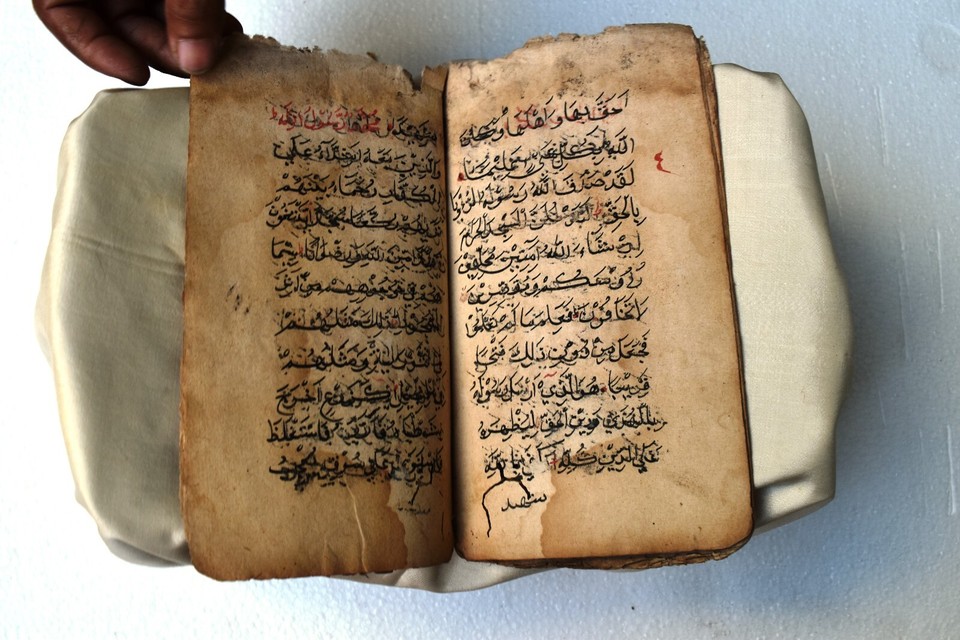 أحق بها وأهلها وكان
الله بكل شيء عليما
٤
لقد صدق الله رسوله الرؤيا
بالحق لتدخلن المسجد الحرام
إن شاء الله آمنين محلقين
رؤسكم ومقصرين
لا تخافون فعلم ما لم تعلموا
فجعل من دون ذلك فتحا
قريبا هو الذي أرسل رسوله
بالهدى ودين الحق ليظهره
على الدين كله وكفى بالله
شهيد
محمد رسول الله
والذين معه أشداء على
الكفار رحماء بينهم
تريهم ركعا سجدا يبتغون
فضلا من الله ورضوانا سيما
هم في وجوههم من أثر
السجود ذلك مثلهم
في التورية ومثلهم
في الإنجيل كزرع أخرج
شطأه فآزره فاستغلظ